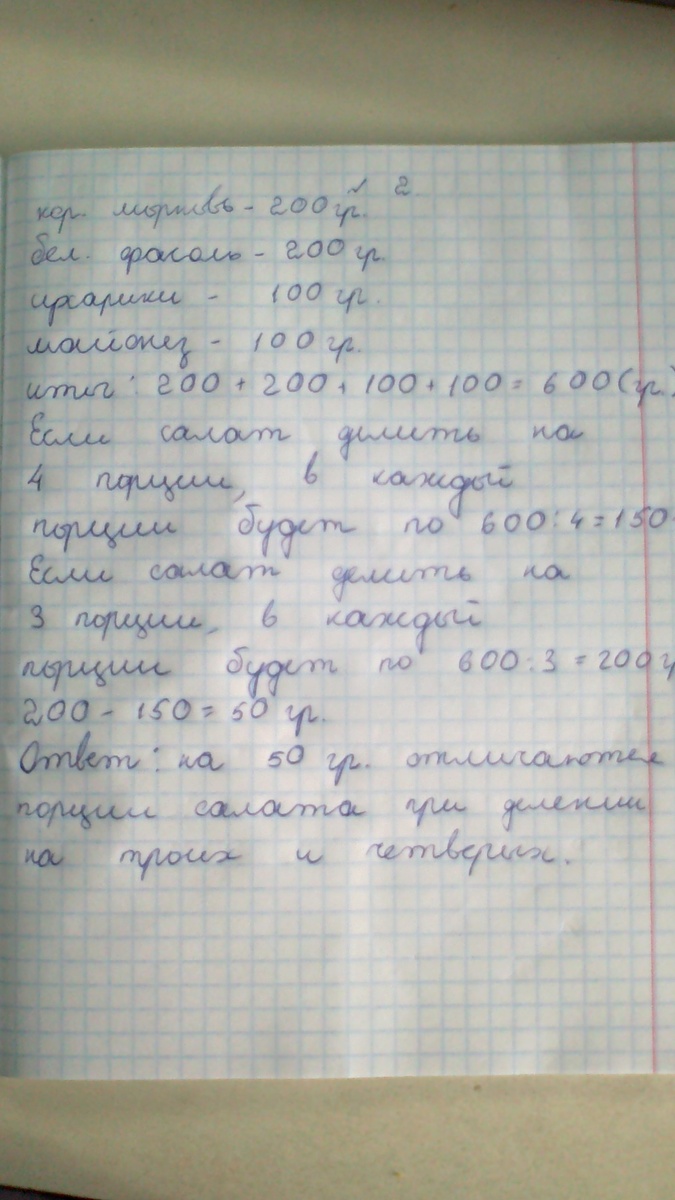 2.
кор. морковь - 200 гр.
бел. фасоль - 200 гр.
сухарики - 100 гр.
майонез - 100 гр.
итог: 200 + 200 + 100 + 100 = 600 (гр.)
Если салат делить на
4 порции, в каждый
порции будет по 600 : 4 = 150
Если салат делить на
3 порции, в каждый
порции будет по 600 : 3 = 200 г
200 - 150 = 50 гр.
Ответ: на 50 гр. отличаются
порции салата при делении
на троих и четверых.